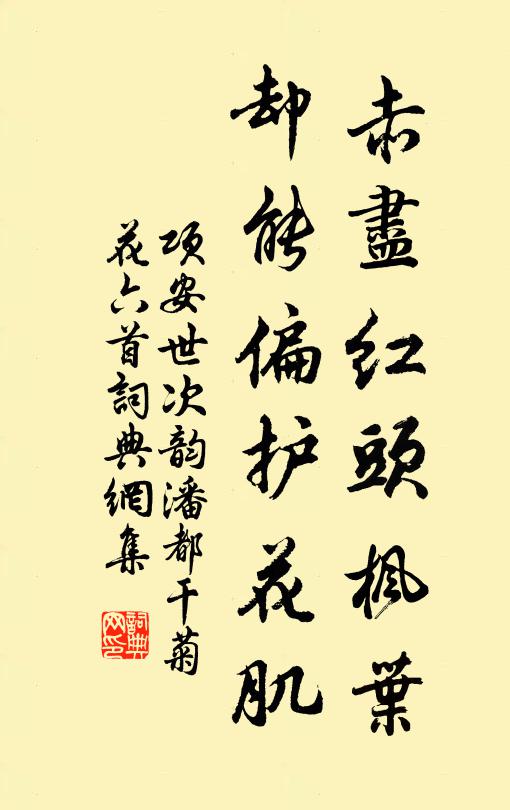 赤盡红頭楓葉
却能偏护花肌
项安世次韵潘都干菊
花六首詞典網集
詞典网印